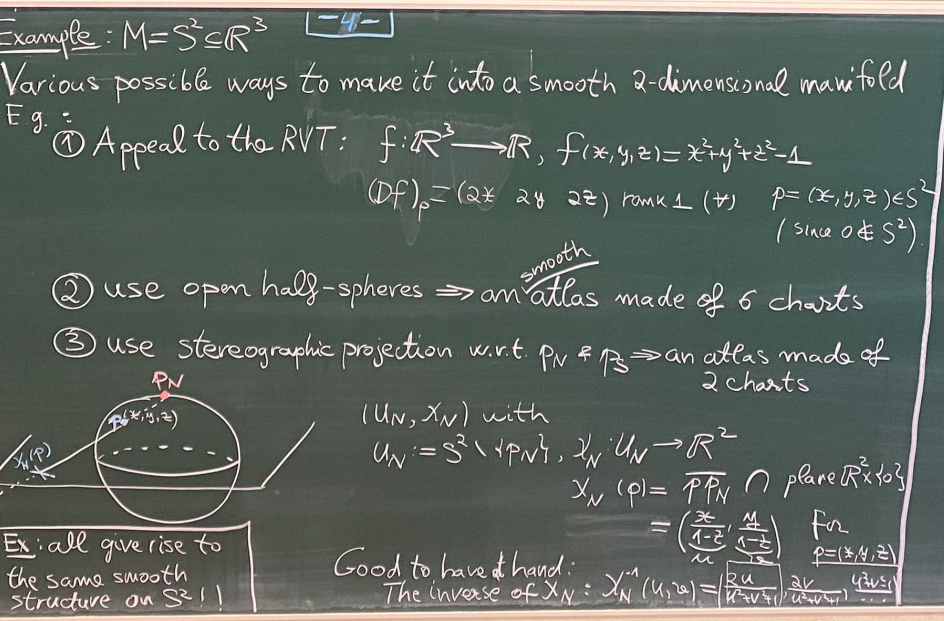 Example: M=S²⊆ℝ³
-4-
Various possible ways to make it into a smooth 2-dimensional manifold
E.g.:
① Appeal to the RVT: f:ℝ³→ℝ, f(x,y,z)=x²+y²+z²-1
(Df)ₚ=(2x 2y 2z) rank 1 (∀) p=(x,y,z)∈S²
(since 0∉S²).
② use open half-spheres ⇒ an smooth atlas made of 6 charts
③ use stereographic projection w.r.t. p_N & p_S ⇒ an atlas made of
2 charts
p_N
p(x,y,z)
χ_N(p)
(U_N, χ_N) with
U_N := S²\{p_N}, χ_N: U_N → ℝ²
χ_N(p) = pp_N ∩ plane ℝ²×{0}
= (x/(1-z), y/(1-z)) For
u v p=(x,y,z)
Ex: all give rise to
the same smooth
structure on S²!!
Good to have at hand:
The inverse of χ_N: χ_N⁻¹(u,v)=(2u/(u²+v²+1), 2v/(u²+v²+1), u²+v²-1/...)